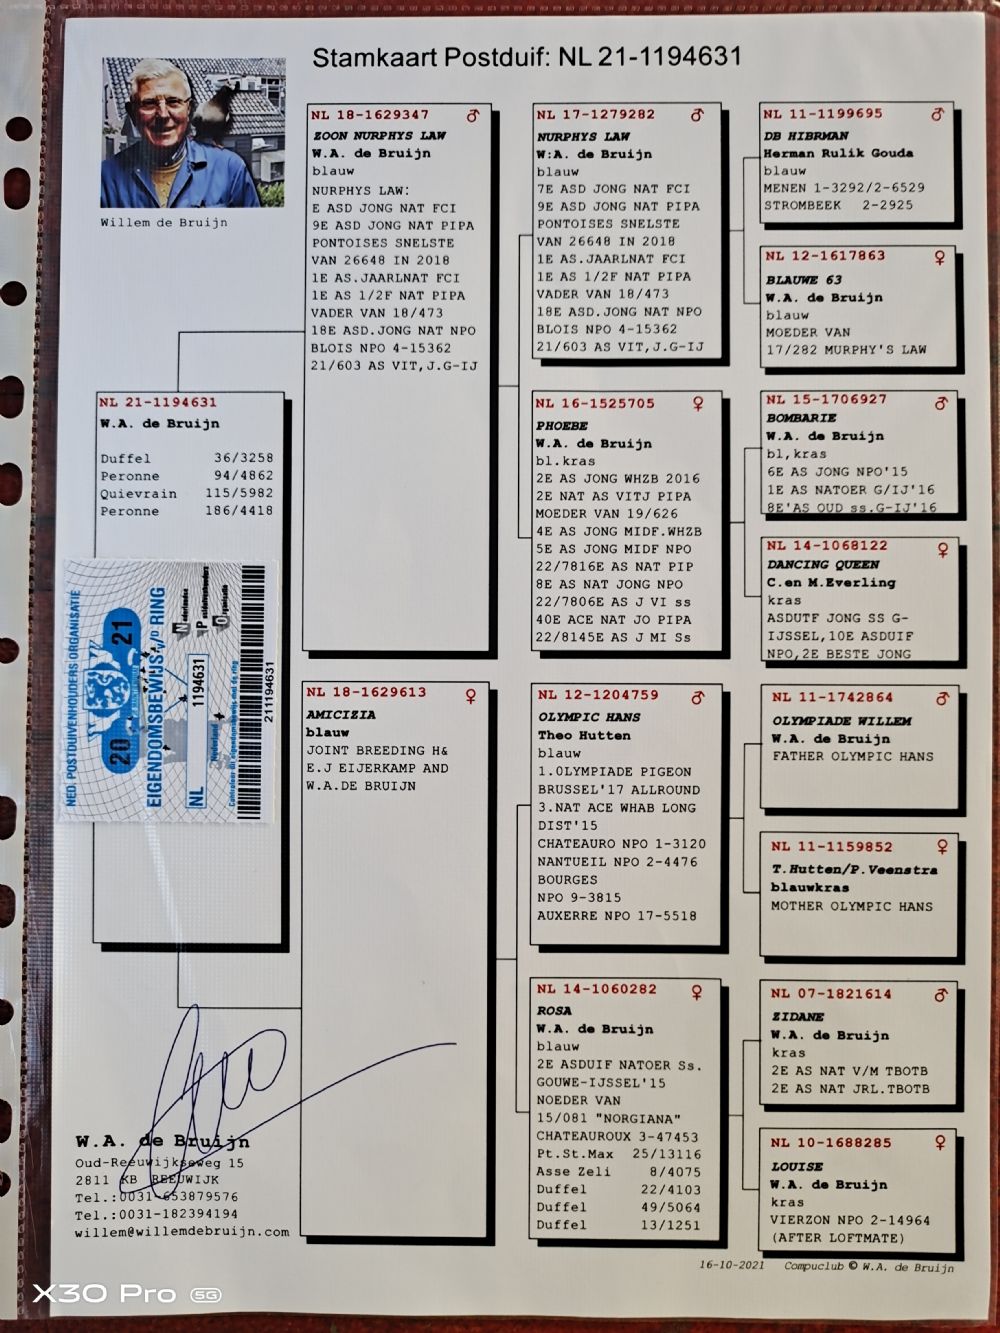 Stamkaart Postduif: NL 21-1194631
Willem de Bruijn
NL 21-1194631
W.A. de Bruijn
Duffel 36/3258
Peronne 94/4862
Quievrain 115/5982
Peronne 186/4418
NED. POSTDUIVENHOUDERS ORGANISATIE
20 21
EIGENDOMSBEWIJS v/d RING
NL 1194631
Nederland
Nederlandse
Postduivenhouders
Organisatie
Controleer dit eigendomsbewijs met de ring
211194631
NL 18-1629347 ♂
ZOON NURPHYS LAW
W.A. de Bruijn
blauw
NURPHYS LAW:
E ASD JONG NAT FCI
9E ASD JONG NAT PIPA
PONTOISES SNELSTE
VAN 26648 IN 2018
1E AS.JAARLNAT FCI
1E AS 1/2F NAT PIPA
VADER VAN 18/473
18E ASD.JONG NAT NPO
BLOIS NPO 4-15362
21/603 AS VIT,J.G-IJ
NL 18-1629613 ♀
AMICIZIA
blauw
JOINT BREEDING H&
E.J EIJERKAMP AND
W.A.DE BRUIJN
NL 17-1279282 ♂
NURPHYS LAW
W:A. de Bruijn
blauw
7E ASD JONG NAT FCI
9E ASD JONG NAT PIPA
PONTOISES SNELSTE
VAN 26648 IN 2018
1E AS.JAARLNAT FCI
1E AS 1/2F NAT PIPA
VADER VAN 18/473
18E ASD.JONG NAT NPO
BLOIS NPO 4-15362
21/603 AS VIT,J.G-IJ
NL 16-1525705 ♀
PHOEBE
W.A. de Bruijn
bl.kras
2E AS JONG WHZB 2016
2E NAT AS VITJ PIPA
MOEDER VAN 19/626
4E AS JONG MIDF.WHZB
5E AS JONG MIDF NPO
22/7816E AS NAT PIP
8E AS NAT JONG NPO
22/7806E AS J VI ss
40E ACE NAT JO PIPA
22/8145E AS J MI Ss
NL 12-1204759 ♂
OLYMPIC HANS
Theo Hutten
blauw
1.OLYMPIADE PIGEON
BRUSSEL'17 ALLROUND
3.NAT ACE WHAB LONG
DIST'15
CHATEAURO NPO 1-3120
NANTUEIL NPO 2-4476
BOURGES
NPO 9-3815
AUXERRE NPO 17-5518
NL 14-1060282 ♀
ROSA
W.A. de Bruijn
blauw
2E ASDUIF NATOER Ss.
GOUWE-IJSSEL'15
NOEDER VAN
15/081 "NORGIANA"
CHATEAUROUX 3-47453
Pt.St.Max 25/13116
Asse Zeli 8/4075
Duffel 22/4103
Duffel 49/5064
Duffel 13/1251
NL 11-1199695 ♂
DB HIBRMAN
Herman Rulik Gouda
blauw
MENEN 1-3292/2-6529
STROMBEEK 2-2925
NL 12-1617863 ♀
BLAUWE 63
W.A. de Bruijn
blauw
MOEDER VAN
17/282 MURPHY'S LAW
NL 15-1706927 ♂
BOMBARIE
W.A. de Bruijn
bl,kras
6E AS JONG NPO'15
1E AS NATOER G/IJ'16
8E'AS OUD ss.G-IJ'16
NL 14-1068122 ♀
DANCING QUEEN
C.en M.Everling
kras
ASDUTF JONG SS G-
IJSSEL,10E ASDUIF
NPO,2E BESTE JONG
NL 11-1742864 ♂
OLYMPIADE WILLEM
W.A. de Bruijn
FATHER OLYMPIC HANS
NL 11-1159852 ♀
T.Hutten/P.Veenstra
blauwkras
MOTHER OLYMPIC HANS
NL 07-1821614 ♂
ZIDANE
W.A. de Bruijn
kras
2E AS NAT V/M TBOTB
2E AS NAT JRL.TBOTB
NL 10-1688285 ♀
LOUISE
W.A. de Bruijn
kras
VIERZON NPO 2-14964
(AFTER LOFTMATE)
W.A. de Bruijn
Oud-Reeuwijkseweg 15
2811 KB REEUWIJK
Tel.:0031-653879576
Tel.:0031-182394194
willem@willemdebruijn.com
16-10-2021 Compuclub © W.A. de Bruijn
X30 Pro 5G